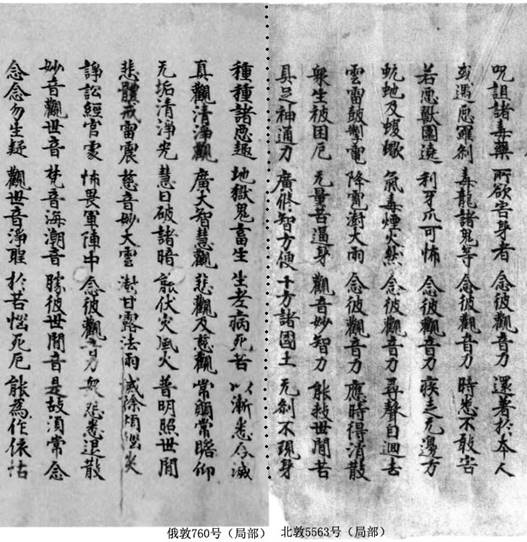 呪詛諸毒藥 所欲害身者 念彼觀音力 還著於本人
或遇惡羅剎 毒龍諸鬼等 念彼觀音力 時悉不敢害
若惡獸圍遶 利牙爪可怖 念彼觀音力 疾走无邊方
蚖虵及蝮蠍 氣毒煙火然 念彼觀音力 尋聲自迴去
雲雷鼓掣電 降雹澍大雨 念彼觀音力 應時得消散
衆生被困厄 无量苦逼身 觀音妙智力 能救世間苦
具足神通力 廣修智方便 十方諸國土 无剎不現身
種種諸惡趣 地獄鬼畜生 生老病死苦 以漸悉令滅
真觀清淨觀 廣大智慧觀 悲觀及慈觀 常願常瞻仰
无垢清淨光 慧日破諸暗 能伏災風火 普明照世間
悲體戒雷震 慈音妙大雲 澍甘露法雨 滅除煩惱炎
諍訟經官處 怖畏軍陣中 念彼觀音力 衆怨悉退散
妙音觀世音 梵音海潮音 勝彼世間音 是故須常念
念念勿生疑 觀世音淨聖 於苦惱死厄 能為作依怙
俄敦760号（局部） 北敦5563号（局部）